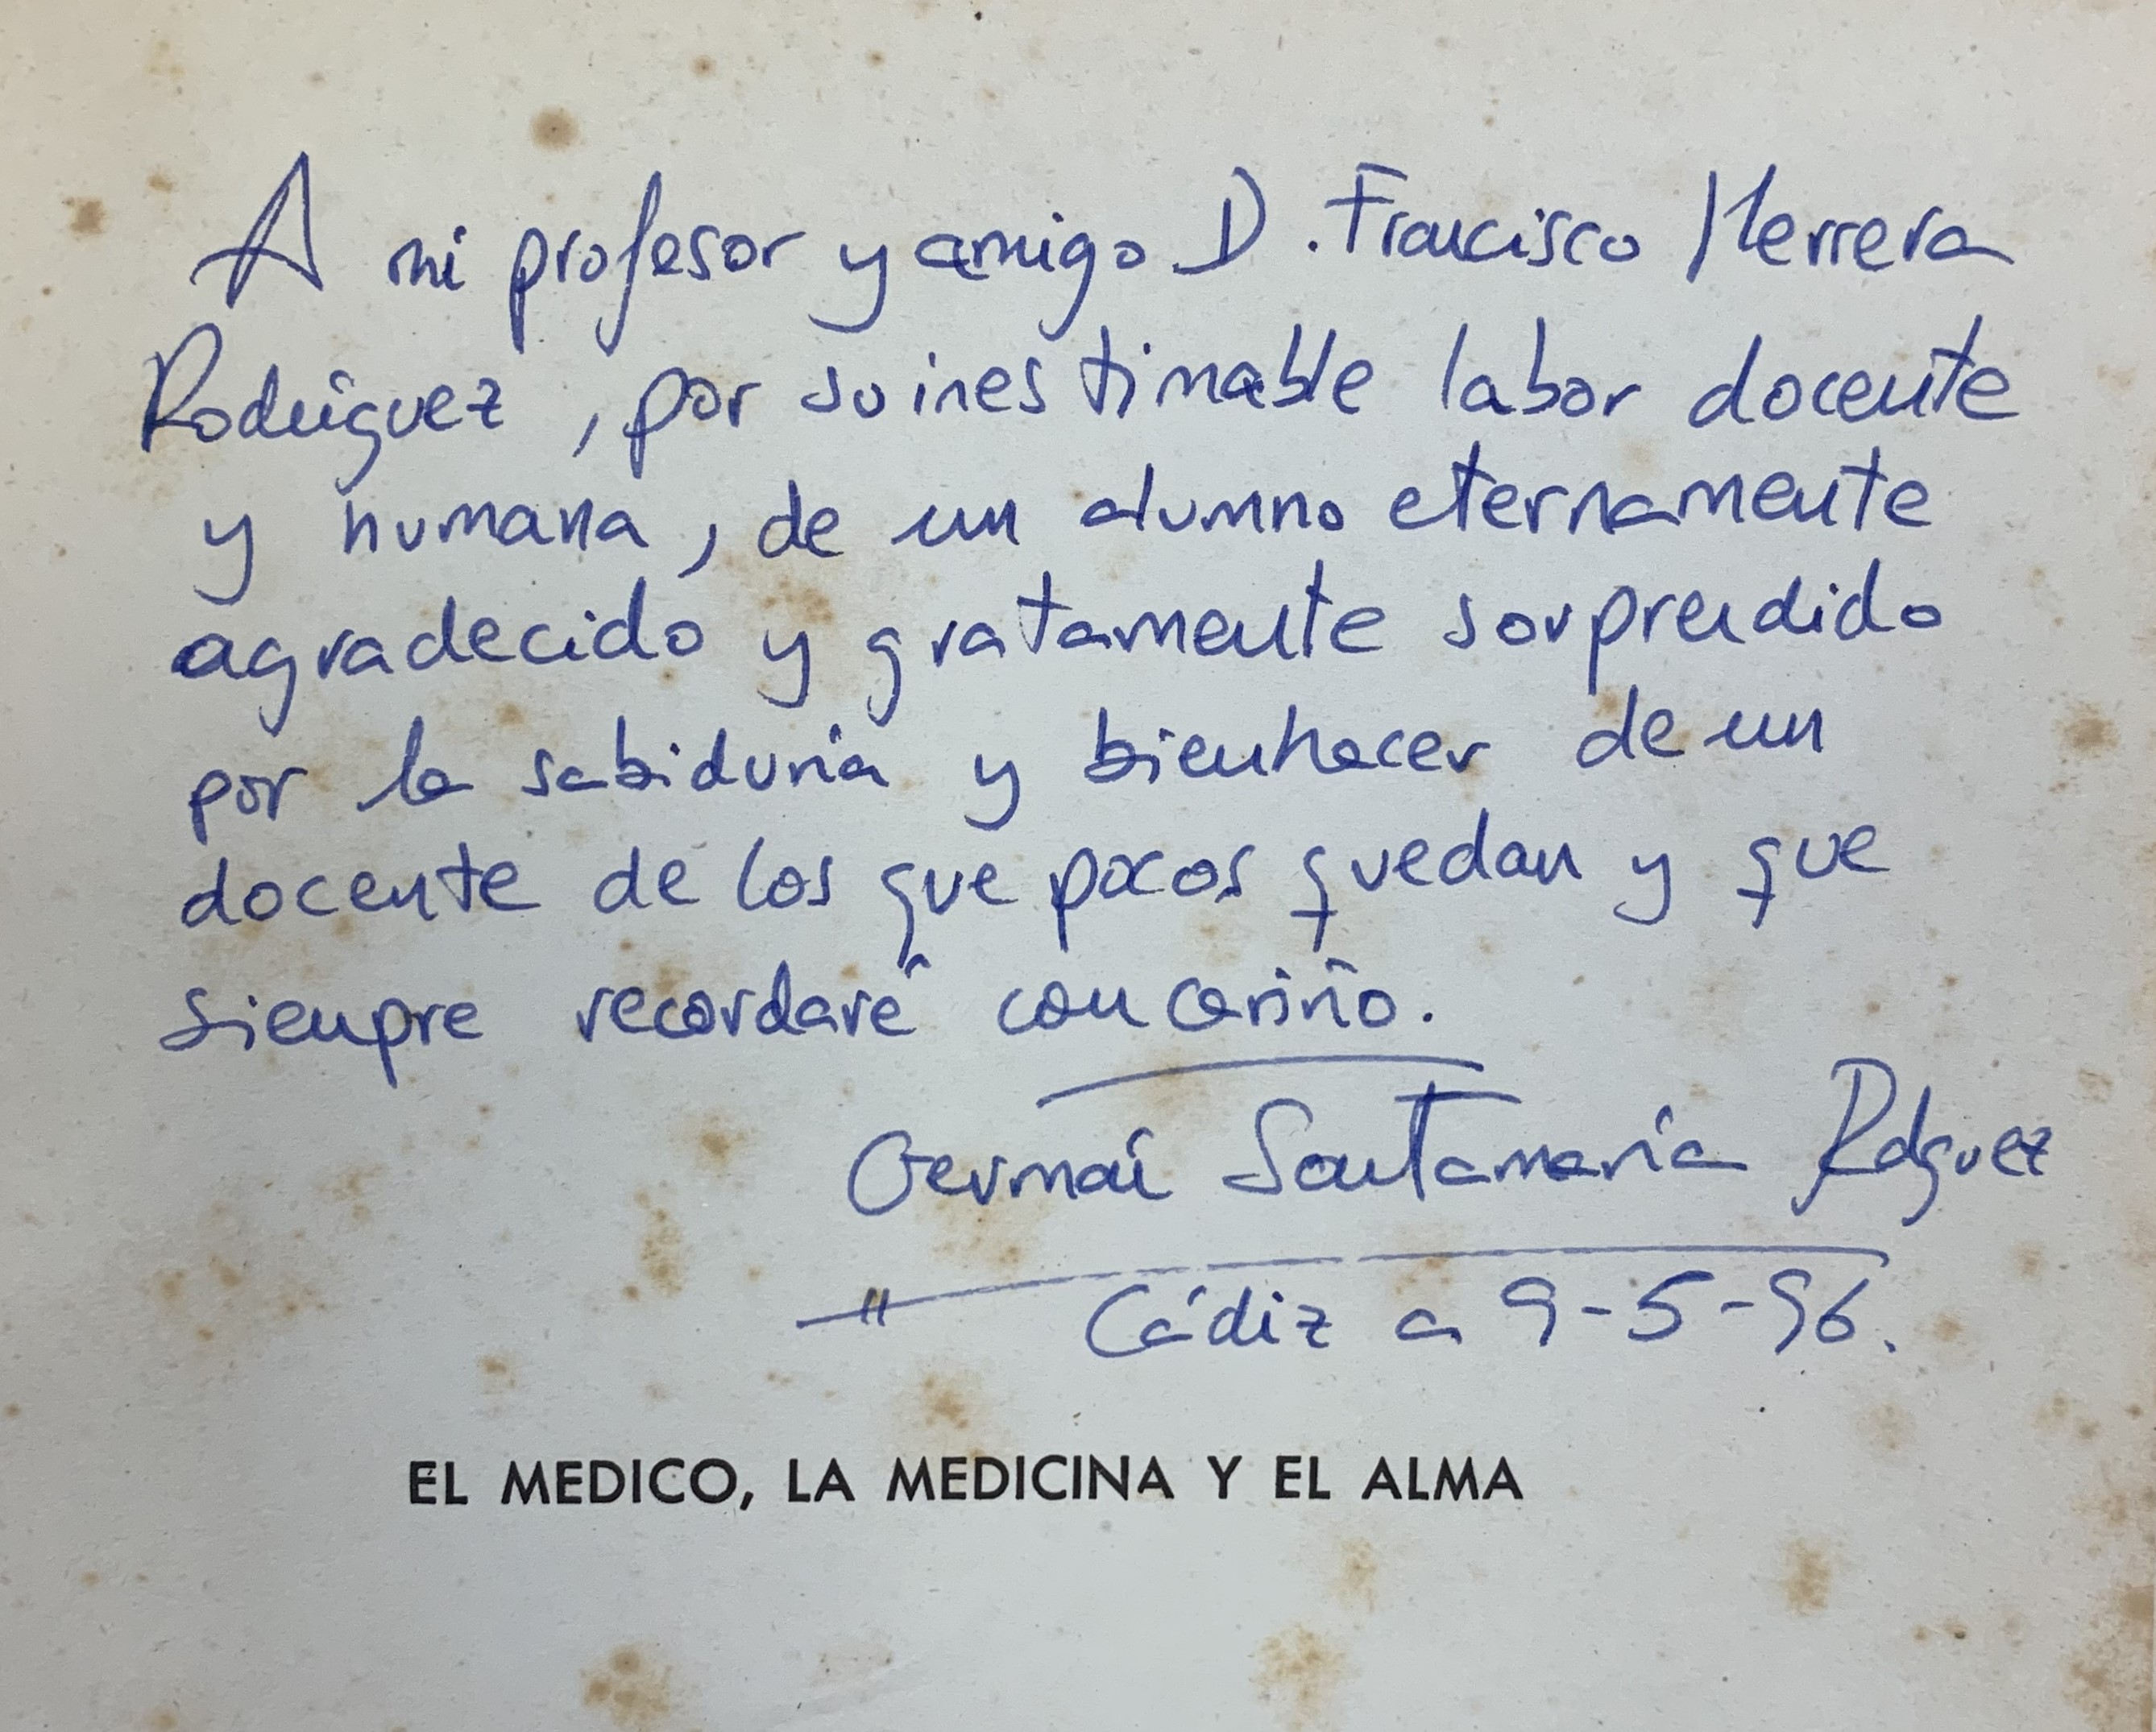 A mi profesor y amigo D. Francisco Herrera
Rodríguez, por su inestimable labor docente
y humana, de un alumno eternamente
agradecido y gratamente sorprendido
por la sabiduría y bienhacer de un
docente de los que pocos quedan y que
siempre recordaré con cariño.
Germán Santamaría Rdguez
Cádiz a 9-5-96.
EL MEDICO, LA MEDICINA Y EL ALMA